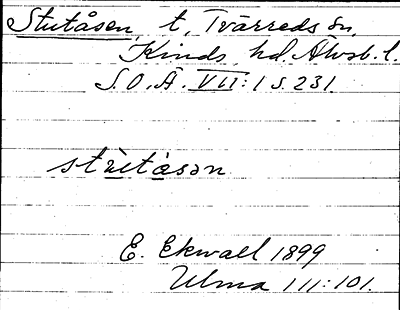 Stutåsen t, Tvärreds sn,
Kinds hd. Älvsb. l.
S.O.Ä. VII:1 s. 231
strùtåsən
E. Ekwall 1899
Ulma 111:101.